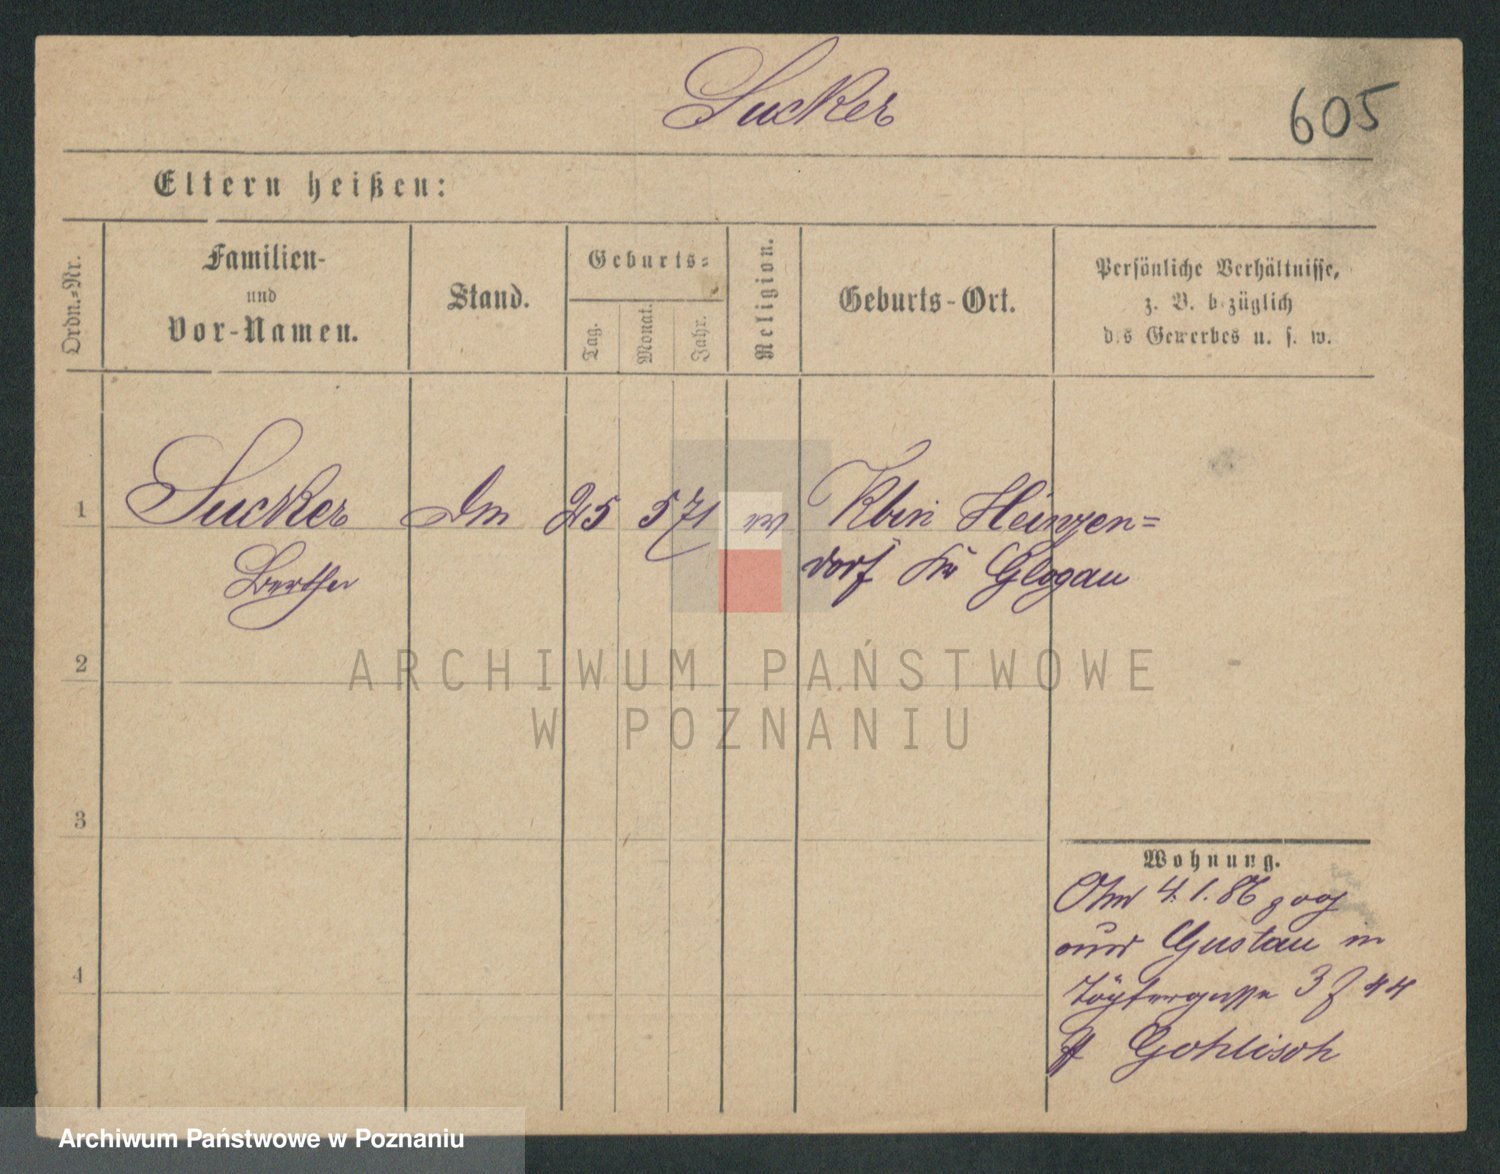 Sucker
605
Eltern heißen:
Ordn.-Nr.
Familien-
und
Vor-Namen.
Stand.
Geburts-
Tag.
Monat.
Jahr.
Religion.
Geburts-Ort.
Persönliche Verhältnisse,
z. B. bezüglich
des Gewerbes u. s. w.
1
Sucker 25 5 71 Klein Heinzen=
Bertha dorf Kr Glogau
2
ARCHIWUM PAŃSTWOWE
W POZNANIU
3
Wohnung.
4.1.86 zog
aus Gustau in
Töpfergasse 3 44
Gohlisch
4
Archiwum Państwowe w Poznaniu